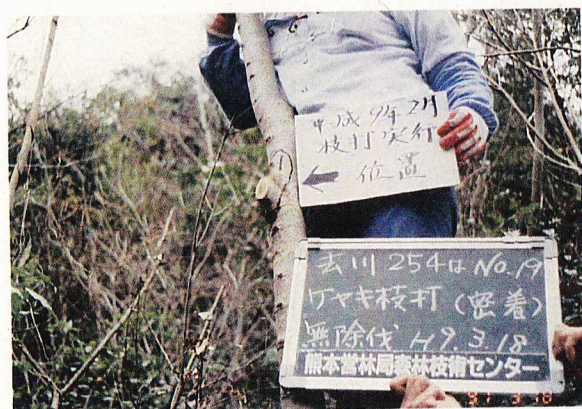 平成9年2月
枝打実行
← 位置
1
去川254は No.19
ケヤキ枝打(密着)
無除伐 H9.3.18
熊本営林局森林技術センター
97 3 18